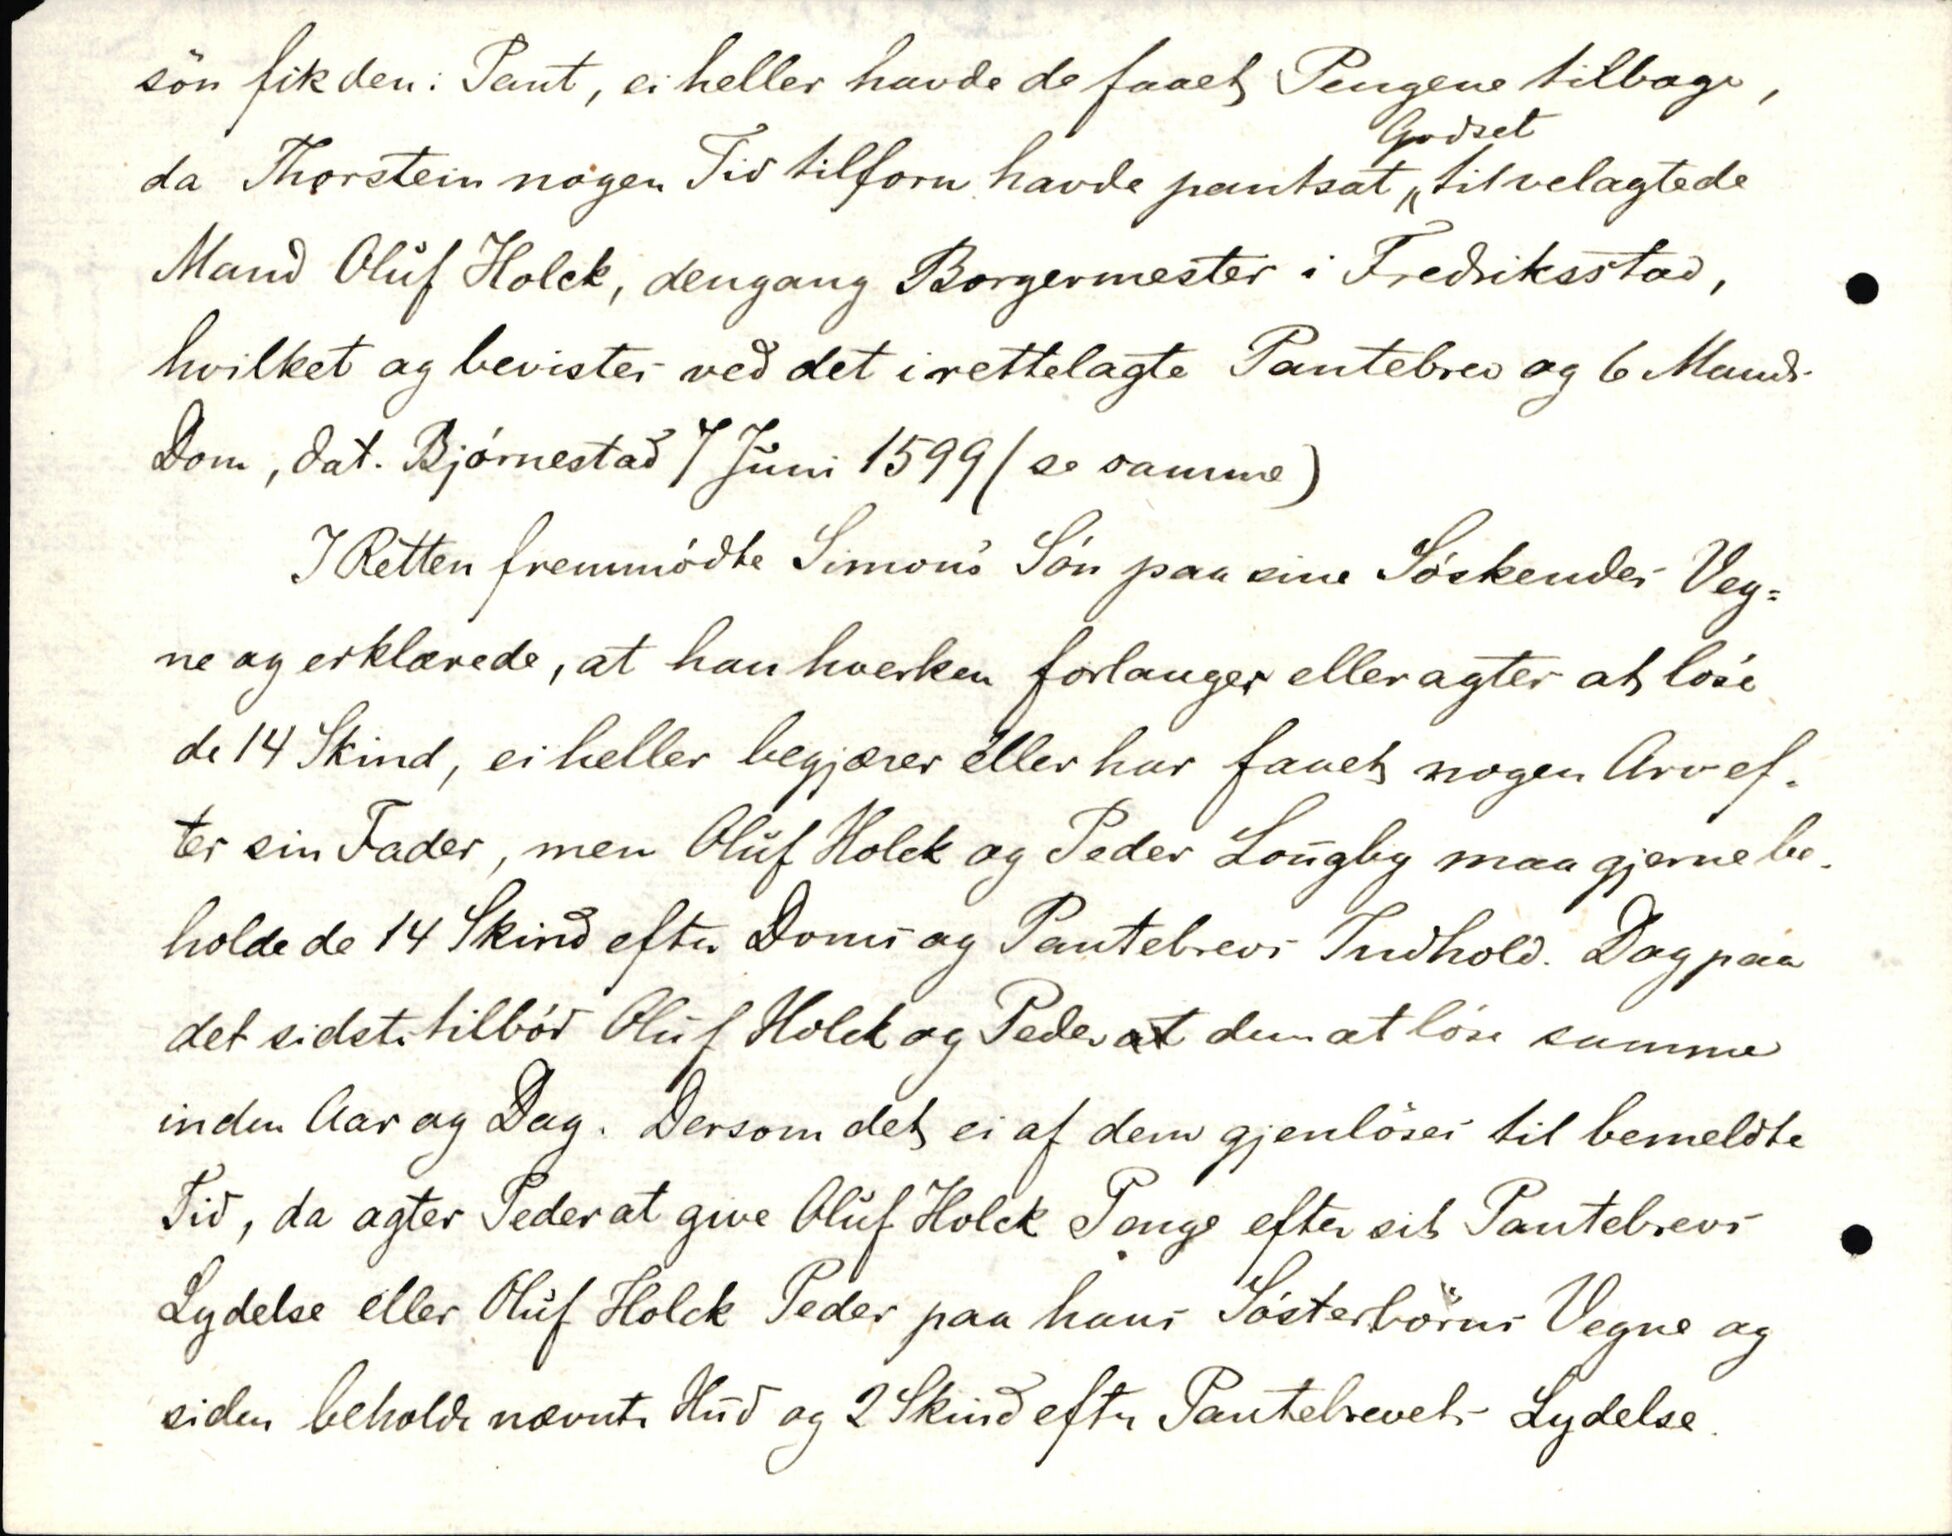 sön fik den i Pant, ei heller havde de faaet Pengene tilbage,
da Thorstein nogen Tid tilforn havde pantsat Godset til velagtede
Mand Oluf Holck, dengang Borgermester i Fredriksstad,
hvilket og bevistes ved det i rettelagte Pantebrev og 6 Mands
Dom, dat. Bjórnestad 7 Juni 1599 (se samme)
I Retten fremmódte Simons Són paa sine Sóskendes Veg=
ne og erklærede, at han hverken forlanger eller agter at lóse
de 14 Skind, ei heller begjærer eller har faaet nogen Arv ef-
ter sin Fader, men Oluf Holck og Peder Lougby maa gjerne be-
holde de 14 Skind efter Doms og Pantebrevs Indhold. Dog paa
det sidste tilbód Oluf Holck og Peder dem at lóse samme
inden Aar og Dag. Dersom det ei af dem gjenlöses til bemeldte
Tid, da agter Peder at give Oluf Holck Penge efter sit Pantebrevs
Lydelse eller Oluf Holck Peder paa hans Sósterbörns Vegne og
siden beholde nævnte Hud og 2 Skind efter Pantebrevets Lydelse.